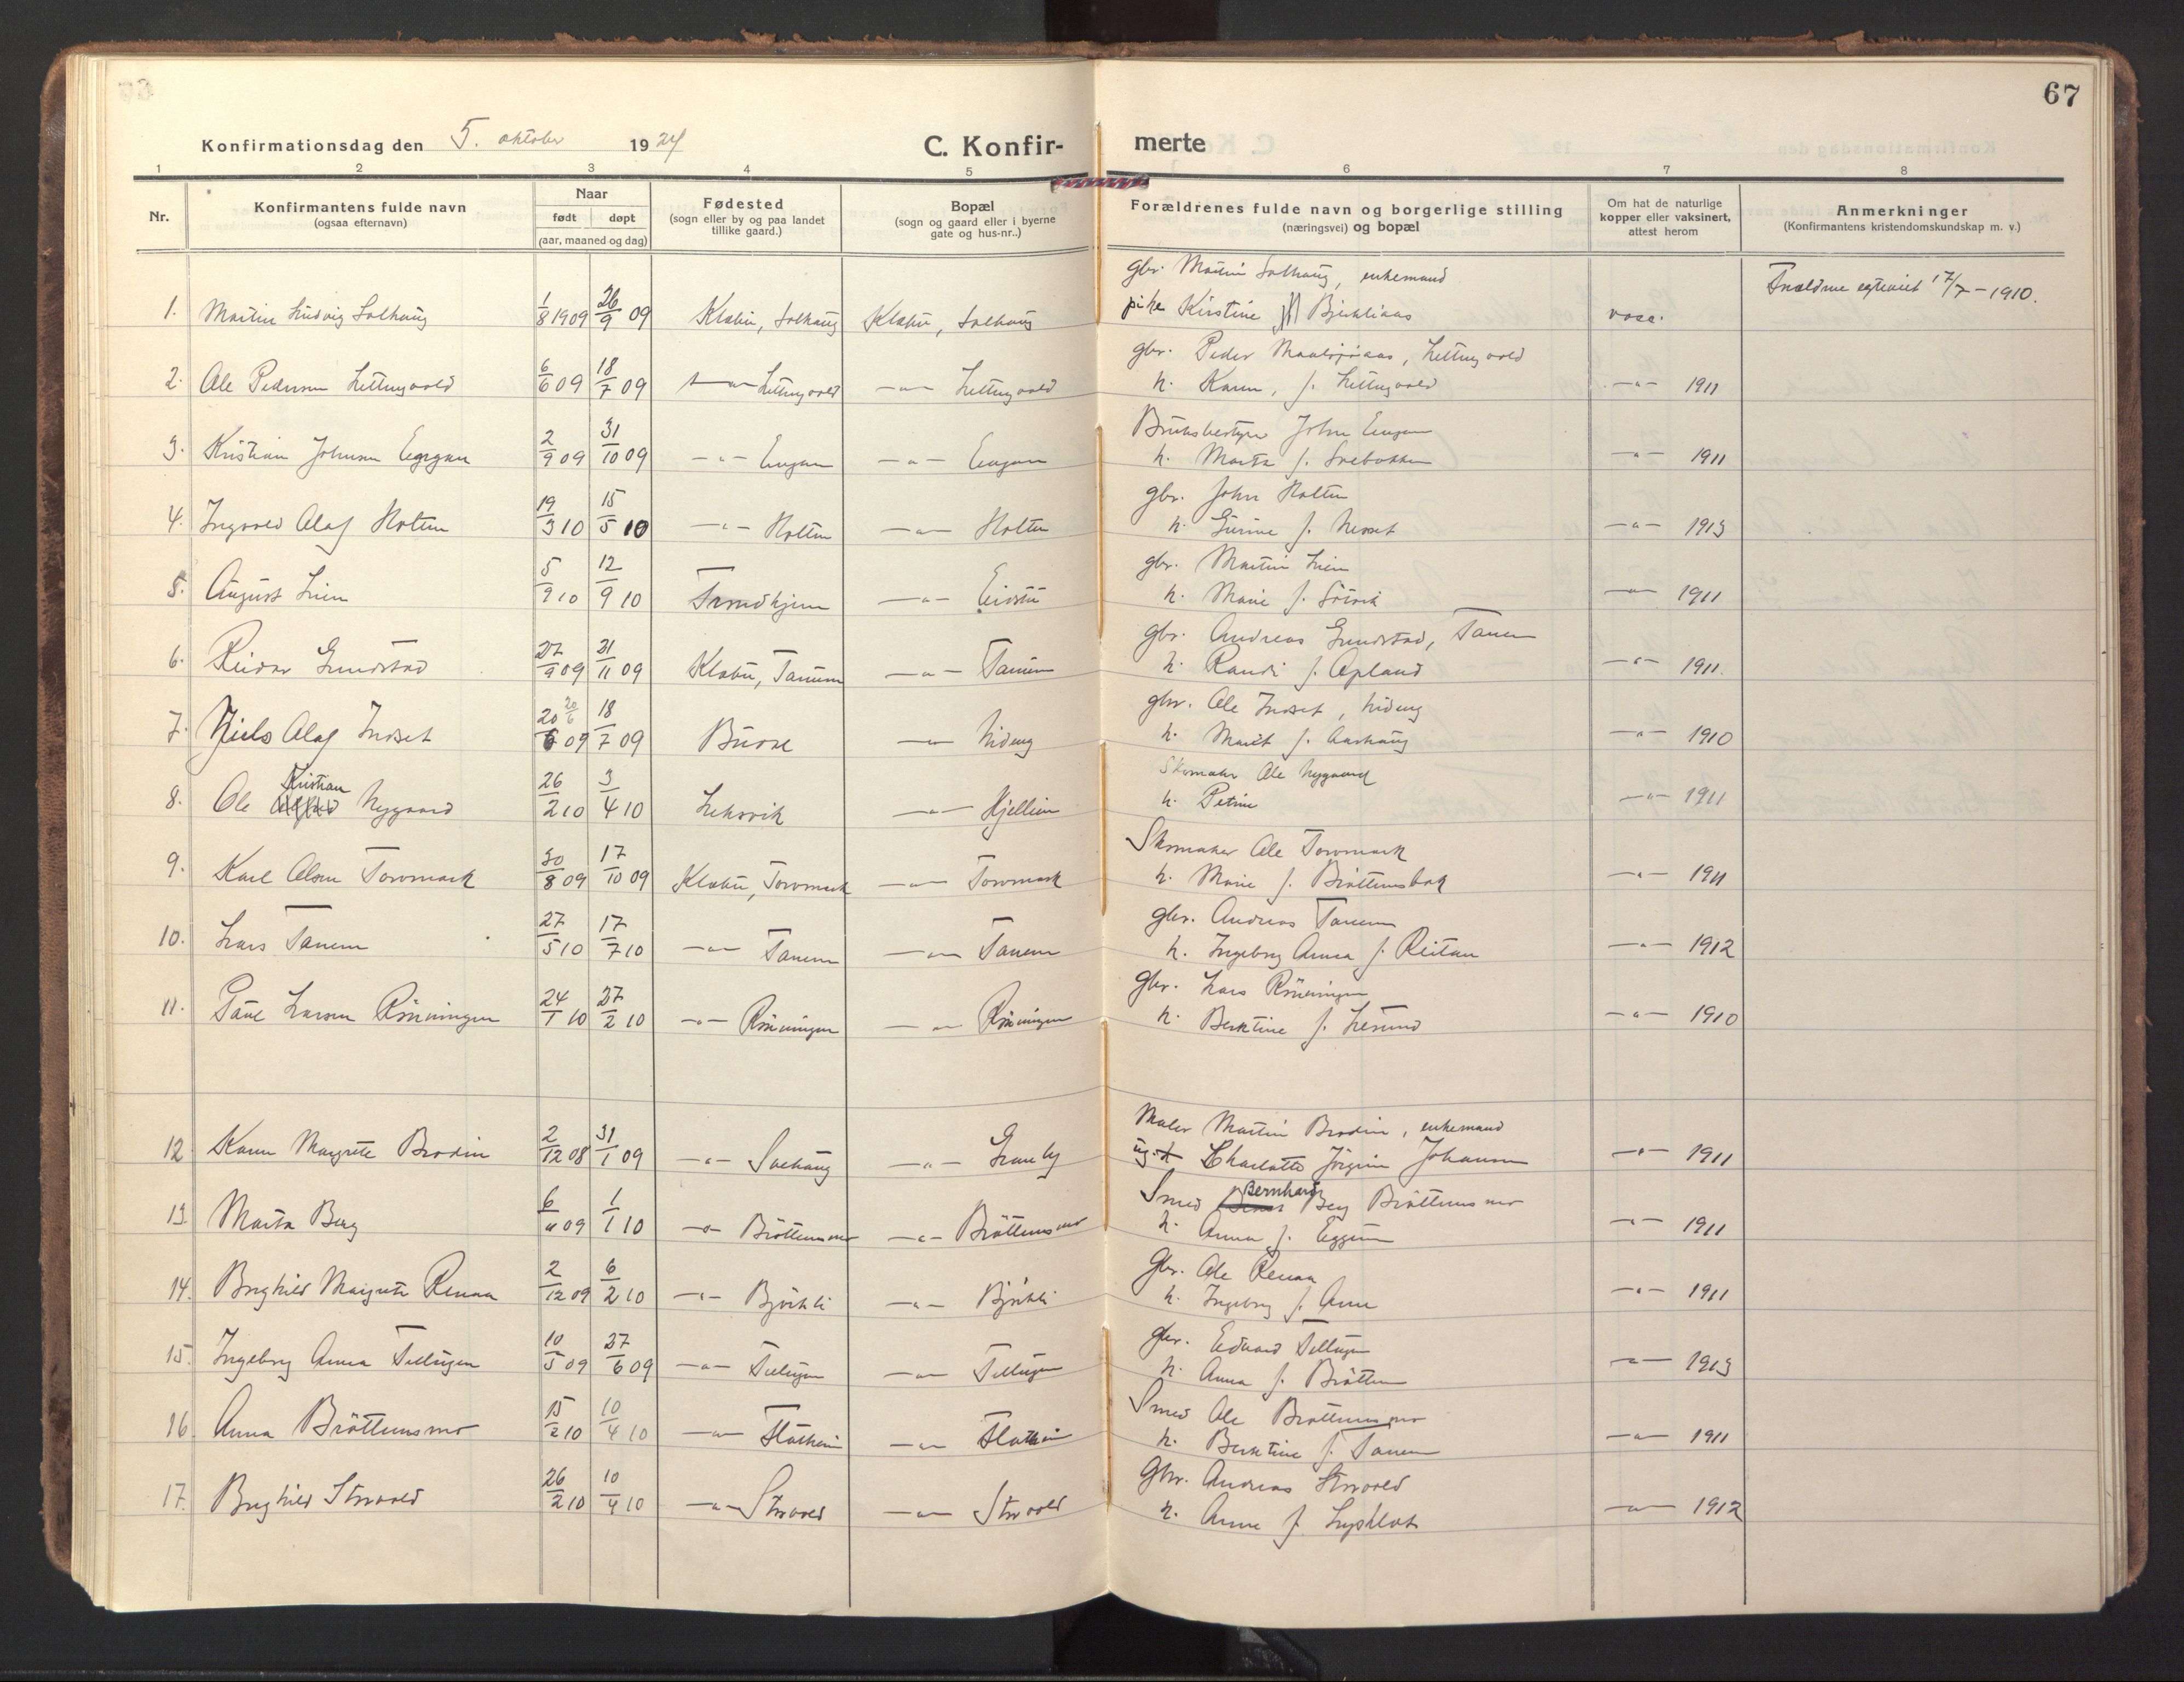 67
Konfirmationsdag den 5. oktober 1924
C. Konfir-
merte
1 2 3 4 5 6 7 8
Nr.
Konfirmantens fulde navn
(ogsaa efternavn)
Naar
født døpt
(aar, maaned og dag)
Fødested
(sogn eller by og paa landet
tillike gaard.)
Bopæl
(sogn og gaard eller i byerne
gate og hus-nr..)
Forældrenes fulde navn og borgerlige stilling
(næringsvei) og bopæl
Om hat de naturlige
kopper eller vaksinert,
attest herom
Anmerkninger
(Konfirmantens kristendomskundskap m. v.)
gbr. Martin Solhaug, enkemand
1. Martin Ludvig Solhaug 1/8 1909 26/9 09 Klæbu, Solhaug Klæbu, Solhaug pike Kirstine Bjerkliaas vacc. 17/7 - 1910.
gbr. Peder
2. Ole Pedersen Lettingvold 6/6 09 18/7 09 -"- Lettingvold -"- Lettingvold h. Karen, f. Lettingvold -"- 1911
Bruksbestyrer John Engan
3. Kristian Johnsen Engan 2/9 09 31/10 09 -"- Engan -"- Engan h. Marta f. -"- 1911
gbr. John Holten
4. Ingvald Olaf Holten 19/3 10 15/5 10 -"- Holten -"- Holten h. Gurine f. Nesset -"- 1913
gbr. Martin Lien
5. August Lien 5/9 10 12/9 10 Trondhjem -"- Eidstu h. Marie f. -"- 1911
gbr. Andreas Grendstad, Tanem
6. Reidar Grendstad 27/9 09 21/11 09 Klæbu, Tanem -"- Tanem h. Randi f. Opland -"- 1911.
gbr. Ole Indset, Nideng
7. Niels Olaf Indset 20/6 09 20/6 18/7 09 Buvik -"- Nideng h. Marit f. Aashaug -"- 1910
Skomaker Ole Nygaard
8. Ole Kristian Nygaard 26/2 10 3/4 10 Leksvik -"- Hjellien h. Petrine -"- 1911
Skomaker Ole Torvmark
9. Karl Olsen Torvmark 30/8 09 17/10 09 Klæbu, Torvmark -"- Torvmark h. Marie f. Bröttemsbak -"- 1911
gbr. Andreas Tanem
10. Lars Tanem 27/5 10 17/7 10 -"- Tanem -"- Tanem h. Ingeborg Anna f. Reitan -"- 1912
gbr. Lars Rönningen
11. Paul Larsen Rönningen 24/1 10 27/2 10 -"- Rönningen -"- Rönningen h. Berktine f. -"- 1910
Maler Martin Brodin, enkemand
12. Karen Margrete Brodin 2/12 08 31/1 09 -"- Solhaug -"- ug. Charlotte Jörgine Johansen -"- 1911
Smed Bernhard Berg Bröttemsmo
13. Marta Berg 6/11 09 1/1 10 -"- Bröttemsmo -"- Bröttemsmo h. Anna f. Eggen -"- 1911
Gbr. Ole Renaa
14. Borghild Margrete Renaa 2/12 09 6/2 10 -"- Björkli -"- Björkli h. Ingeborg f. Aune -"- 1911
gbr. Edvard Tellugen
15. Ingeborg Anna Tellugen 10/5 09 27/6 09 -"- Tellugen -"- Tellugen h. Anna f. Bröttem -"- 1913
Smed Ole Bröttemsmo
16. Anna Bröttemsmo 15/2 10 10/4 10 -"- Flatheim -"- Flatheim h. Berktine f. Tanem -"- 1911
Gbr. Andreas Storvold
17. Borghild Storvold 26/2 10 10/4 10 -"- Storvold -"- Storvold h. Anne f. Lysklet -"- 1912